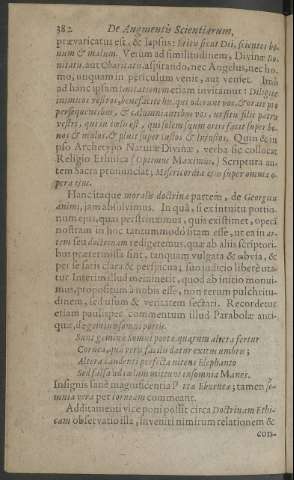 382 De Augmentis Scientiarum,
prævaricatus est, & lapsus: Eritis sicut Dii, scientes bo-
num & malum. Verum ad similitudinem, Divinæ bo-
nitatis, aut Charitatis, aspirando, nec Angelus, nec ho-
mo, unquam in periculum venit, aut veniet. Imò
ad hanc ipsam imitationem etiam invitamur: Diligite
inimicos vestros, benefacite his, qui oderunt vos, & orate pro
persequentibus, & calumniantibus vos, ut sitis filii patris
vestri, qui in cœlis est, qui solem suum oriri facit super bo-
nos & malos, & pluit super justos & injustos. Quin & in
ipso Archetypo Naturæ Divinæ, verba sic collocat
Religio Ethnica (Optimus Maximus,) Scriptura au-
tem Sacra pronunciat; Misericordia ejus super omnia o-
pera ejus.
Hanc itaque moralis doctrinæ partem, de Georgica
animi, jam absolvimus. In quâ, si ex intuitu portio-
num ejus, quas perstrinximus, quis existimet, operā
nostram in hoc tantummodo sitam esse, ut ea in ar-
tem seu doctrinam redigeremus, quæ ab aliis scriptori-
bus prætermissa sint, tanquam vulgata & obvia, &
per se satis clara & perspicua; suo judicio liberè uta-
tur. Interim illud meminerit, quod ab initio monui-
mus, propositum à nobis esse, non rerum pulchritu-
dinem, sed usum & veritatem sectari. Recordetur
etiam paulisper commentum illud Parabolæ anti-
quæ, de geminis somni portis.
Sunt geminæ Somni portæ, quarum altera fertur
Cornea, quâ veris facilis datur exitus umbris;
Altera candenti perfecta nitens Elephanto
Sed falsa ad cœlum mittunt insomnia Manes.
Insignis sanè magnificentia Portæ Eburneæ; tamen so-
mnia vera per Corneam commeant.
Additamenti vice poni possit circa Doctrinam Ethi-
cam observatio illa, inveniri nimirum relationem &
con-